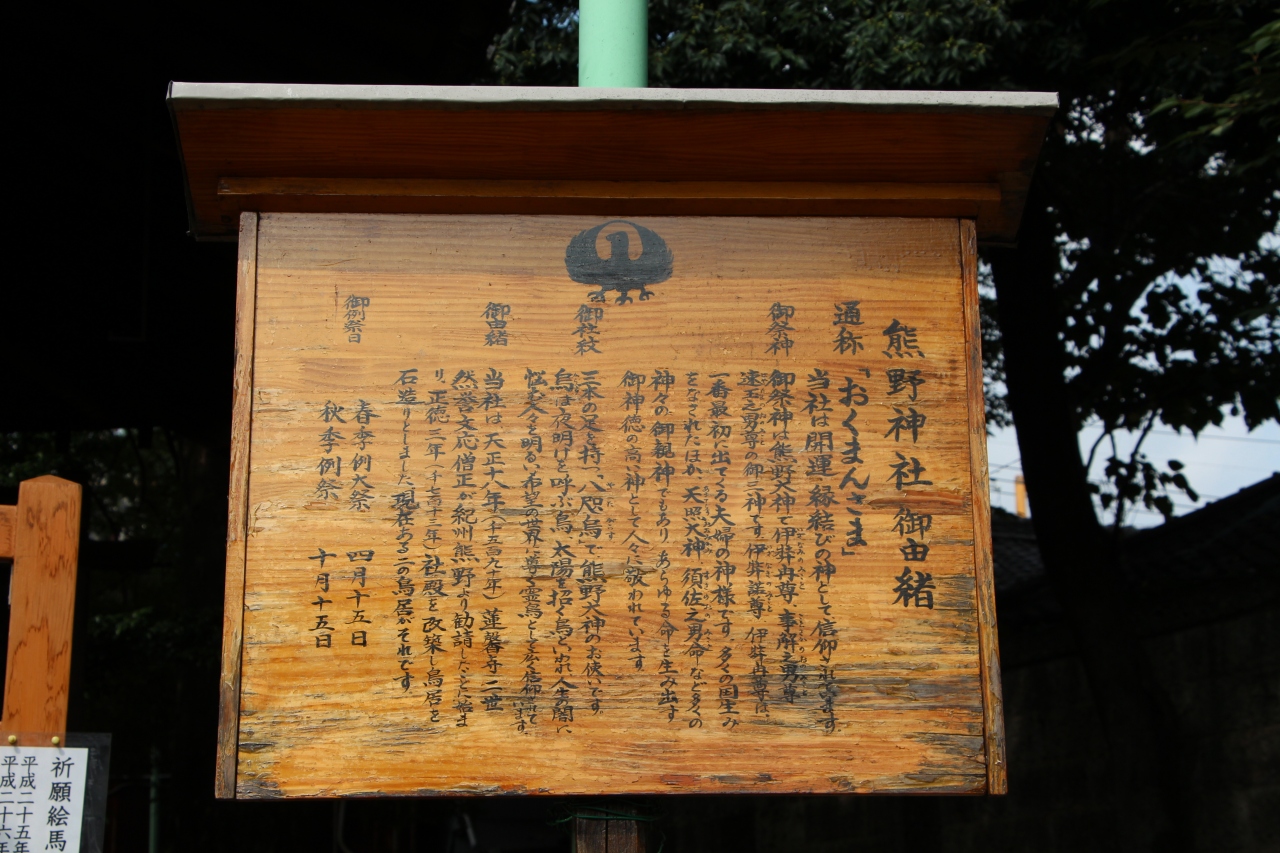 熊野神社御由緒
通称「おくまんさま」
当社は開運・縁結びの神として信仰されています。
御祭神
御祭神は熊野大神で伊弉冉尊・事解之男尊
速玉之男尊の御三神です。伊弉諾尊・伊弉冉尊は、
一番最初に出てくる夫婦の神様です。多くの国生み
をなされたほか、天照大神・須佐之男命など多くの
神々の御親神でもあり、あらゆる命を生み出す
御神徳の高い神として人々に敬われています。
御社紋
三本の足を持つ八咫烏で、熊野大神のお使いです。
烏は夜明けを呼ぶ鳥、太陽を招く鳥といわれ人生の闇に
悩む人々を明るい希望の世界に導く霊鳥として広く信仰されて
います。
御由緒
当社は天正十八年(一五九〇年)蓮馨寺二世
然誉文応僧正が紀州熊野より勧請したことに始ま
り、正徳三年(一七一三年)社殿を改築し鳥居を
石造りとしました。現在ある二の鳥居がそれです。
御例祭日
春季例大祭 四月十五日
秋季例祭 十月十五日
祈願絵馬
平成二十五年
平成二十六年